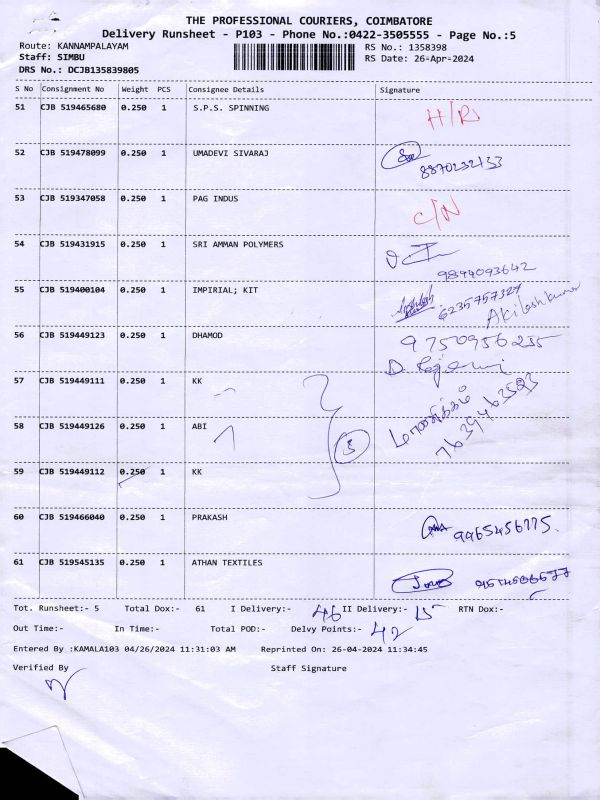 THE PROFESSIONAL COURIERS, COIMBATORE
Delivery Runsheet - P103 - Phone No.:0422-3505555 - Page No.:5
Route: KANNAMPALAYAM RS No.: 1358398
Staff: SIMBU RS Date: 26-Apr-2024
DRS No.: DCJB135839805
S No Consignment No Weight PCS Consignee Details Signature
51 CJB 519465680 0.250 1 S.P.S. SPINNING H/R
52 CJB 519478099 0.250 1 UMADEVI SIVARAJ 8870232133
53 CJB 519347058 0.250 1 PAG INDUS C/N
54 CJB 519431915 0.250 1 SRI AMMAN POLYMERS
9894093642
55 CJB 519400104 0.250 1 IMPIRIAL; KIT 6235757327 Akileshkumar
56 CJB 519449123 0.250 1 DHAMOD 9750956235
57 CJB 519449111 0.250 1 KK
58 CJB 519449126 0.250 1 ABI 3 7639463593
59 CJB 519449112 0.250 1 KK
60 CJB 519466040 0.250 1 PRAKASH 9965456775
61 CJB 519545135 0.250 1 ATHAN TEXTILES
Tot. Runsheet:- 5 Total Dox:- 61 I Delivery:- 46 II Delivery:- 15 RTN Dox:-
Out Time:- In Time:- Total POD:- Delvy Points:- 42
Entered By :KAMALA103 04/26/2024 11:31:03 AM Reprinted On: 26-04-2024 11:34:45
Verified By Staff Signature